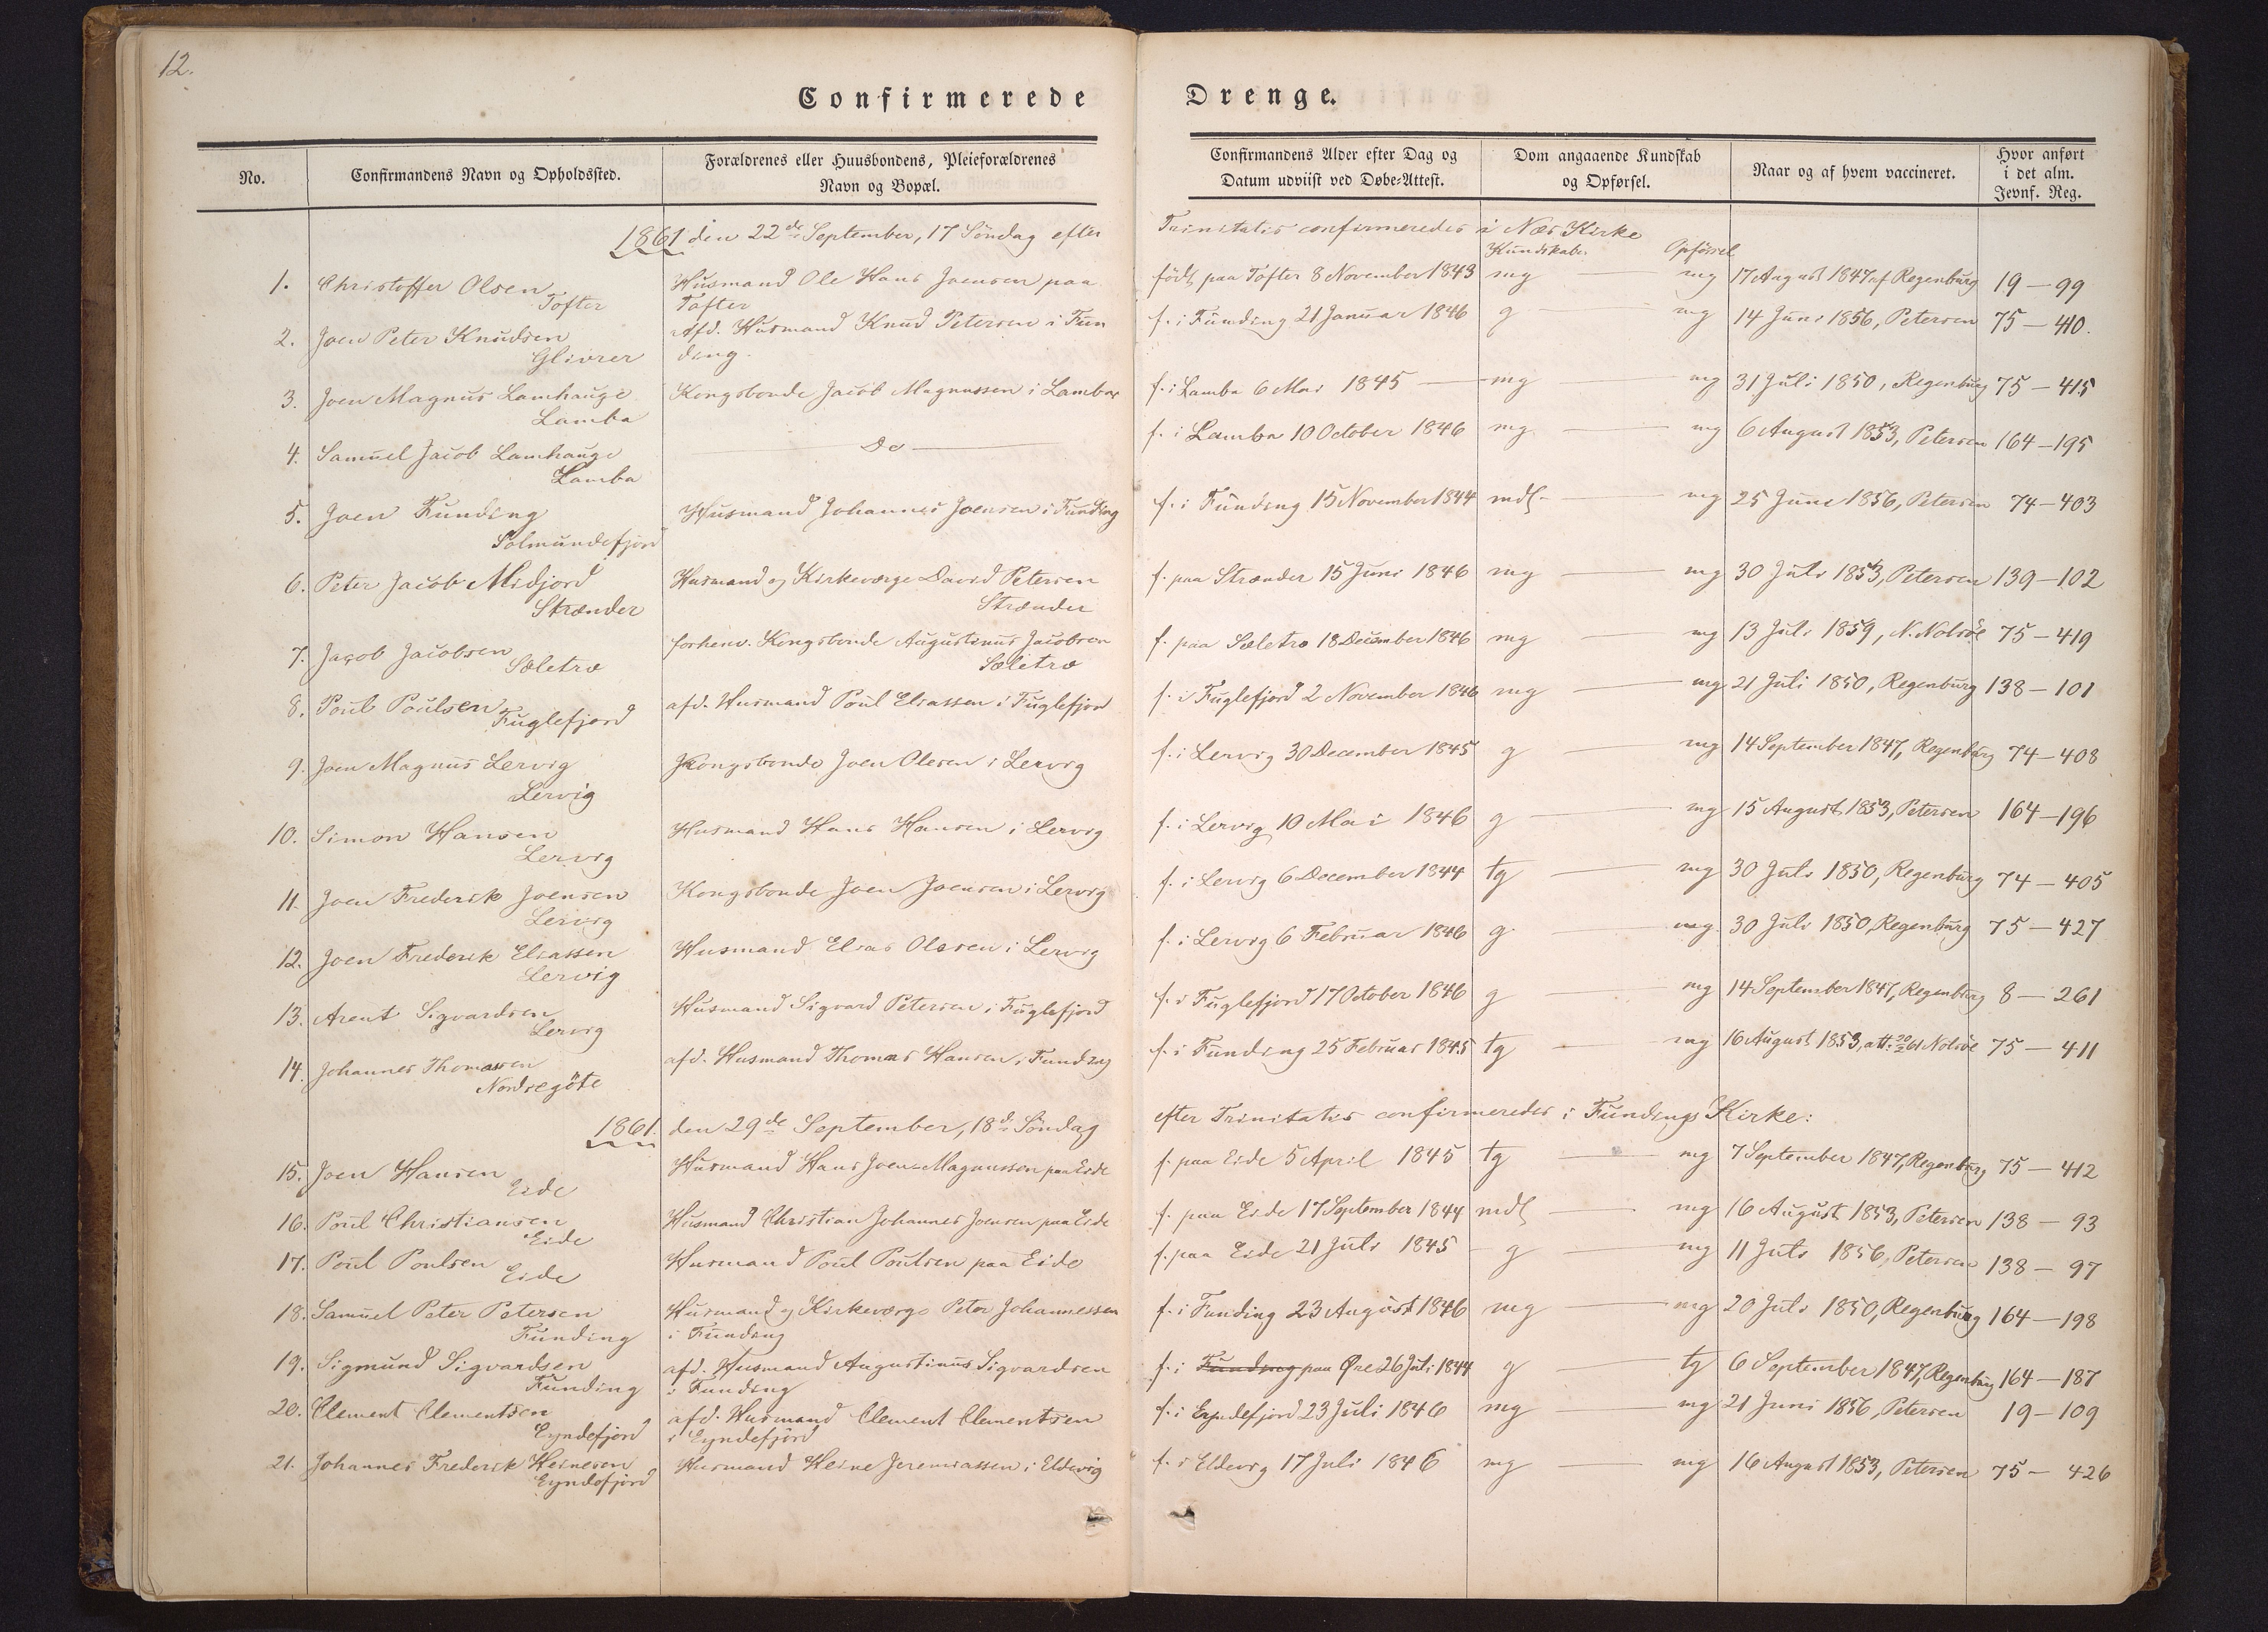 12.
Confirmerede Drenge.
No. Confirmandens Navn og Opholdssted. Forældrenes eller Huusbondens, Pleieforældrenes Navn og Bopæl. Confirmandens Alder efter Dag og Datum udviist ved Døbe-Attest. Dom angaaende Kundskab og Opførsel. Naar og af hvem vaccineret. Hvor anført i det alm. Jevnf. Reg.
1861 den 22de September, 17 Söndag efter Trinitatis confirmeredes i Næs Kirke
Kundskab. Opförsel
1. Christoffer Olsen Husmand Ole Hans Joensen paa födt paa Tofter 8 November 1843 mg mg 17 August 1847 af Regenburg 19-99
Tofter Tofter
2. Joen Peter Knudsen afd. Husmand Knud Petersen i Fun f. i Funding 21 Januar 1846 g mg 14 Juni 1856, Petersen 75-410.
Glivrer ding.
3. Joen Magnus Lamhauge Kongsbonde Jacob Magnussen i Lamba f. i Lamba 6 Mai 1845 mg mg 31 Juli 1850, Regenburg 75-415
Lamba
4. Samuel Jacob Lamhauge Do f. i Lamba 10 October 1846 mg mg 6 August 1853, Petersen 164-195
Lamba
5. Joen Funding Husmand Johannes Joensen i Funding f. i Funding 15 November 1844 mdl mg 25 Juni 1856, Petersen 74-403
Solmundefjord
6. Peter Jacob Midjord Husmand og Kirkeværge David Petersen f. paa Strænder 15 Juni 1846 mg mg 30 Juli 1853, Petersen 139-102
Strænder Strænder
7. Jacob Jacobsen forhenv. Kongsbonde Augustinus Jacobsen f. paa Sæletræ 18 December 1846 mg mg 13 Juli 1859, N. Nolsöe 75-419
Sæletræ Sæletræ
8. Poul Poulsen afd. Husmand Poul Eliassen i Fuglefjord f. i Fuglefjord 2 November 1846 mg mg 21 Juli 1850, Regenburg 138-101
Fuglefjord
9. Joen Magnus Lervig Kongsbonde Joen Olesen i Lervig f. i Lervig 30 December 1845 g mg 14 September 1847, Regenburg 74-408
Lervig
10. Simon Hansen Husmand Hans Hansen i Lervig f. i Lervig 10 Mai 1846 g mg 15 August 1853, Petersen 164-196
Lervig
11. Joen Frederik Joensen Kongsbonde Joen Joensen i Lervig f. i Lervig 6 December 1844 tg mg 30 Juli 1850, Regenburg 74-405
Lervig
12. Joen Frederik Eliassen Husmand Elias Olesen i Lervig f. i Lervig 6 Februar 1846 g mg 30 Juli 1850, Regenburg 75-427
Lervig
13. Arent Sigvardsen Husmand Sigvard Petersen i Fuglefjord f. i Fuglefjord 17 October 1846 g mg 14 September 1847, Regenburg 8-261
Lervig
14. Johannes Thomassen afd. Husmand Thomas Hansen i Funding f. i Funding 25 Februar 1845 tg mg 16 August 1853, att: Nolsöe 75-411
Nordregöte
1861. den 29de September, 18de Söndag efter Trinitatis confirmeredes i Fundings Kirke:
15. Joen Hansen Husmand Hans Joen Magnussen paa Eide f. paa Eide 5 April 1845 tg mg 7 September 1847, Regenburg 75-412
Eide
16. Poul Christiansen Husmand Christian Johannes Joensen paa Eide f. paa Eide 17 September 1844 mdl mg 16 August 1853, Petersen 138-93
Eide
17. Poul Poulsen Husmand Poul Poulsen paa Eide f. paa Eide 21 Juli 1845 g mg 11 Juli 1856, Petersen 138-97
Eide
18. Samuel Peter Petersen Husmand og Kirkeværge Peter Johannessen f. i Funding 23 August 1846 mg mg 20 Juli 1850, Regenburg 164-198
Funding i Funding
19. Sigmund Sigvardsen afd. Husmand Augustinus Sigvardsen f. i Funding paa Øre 26 Juli 1844 g tg 6 September 1847, Regenburg 164-187
Funding i Funding
20. Clement Clementsen afd. Husmand Clement Clementsen f. i Eyndefjord 23 Juli 1846 mg mg 21 Juni 1856, Petersen 19-109
Eyndefjord i Eyndefjord
21. Johannes Frederik Heinesen Husmand Heine Jeremiassen i Eldevig f. i Eldevig 17 Juli 1846 mg mg 16 August 1853, Petersen 75-426
Eyndefjord